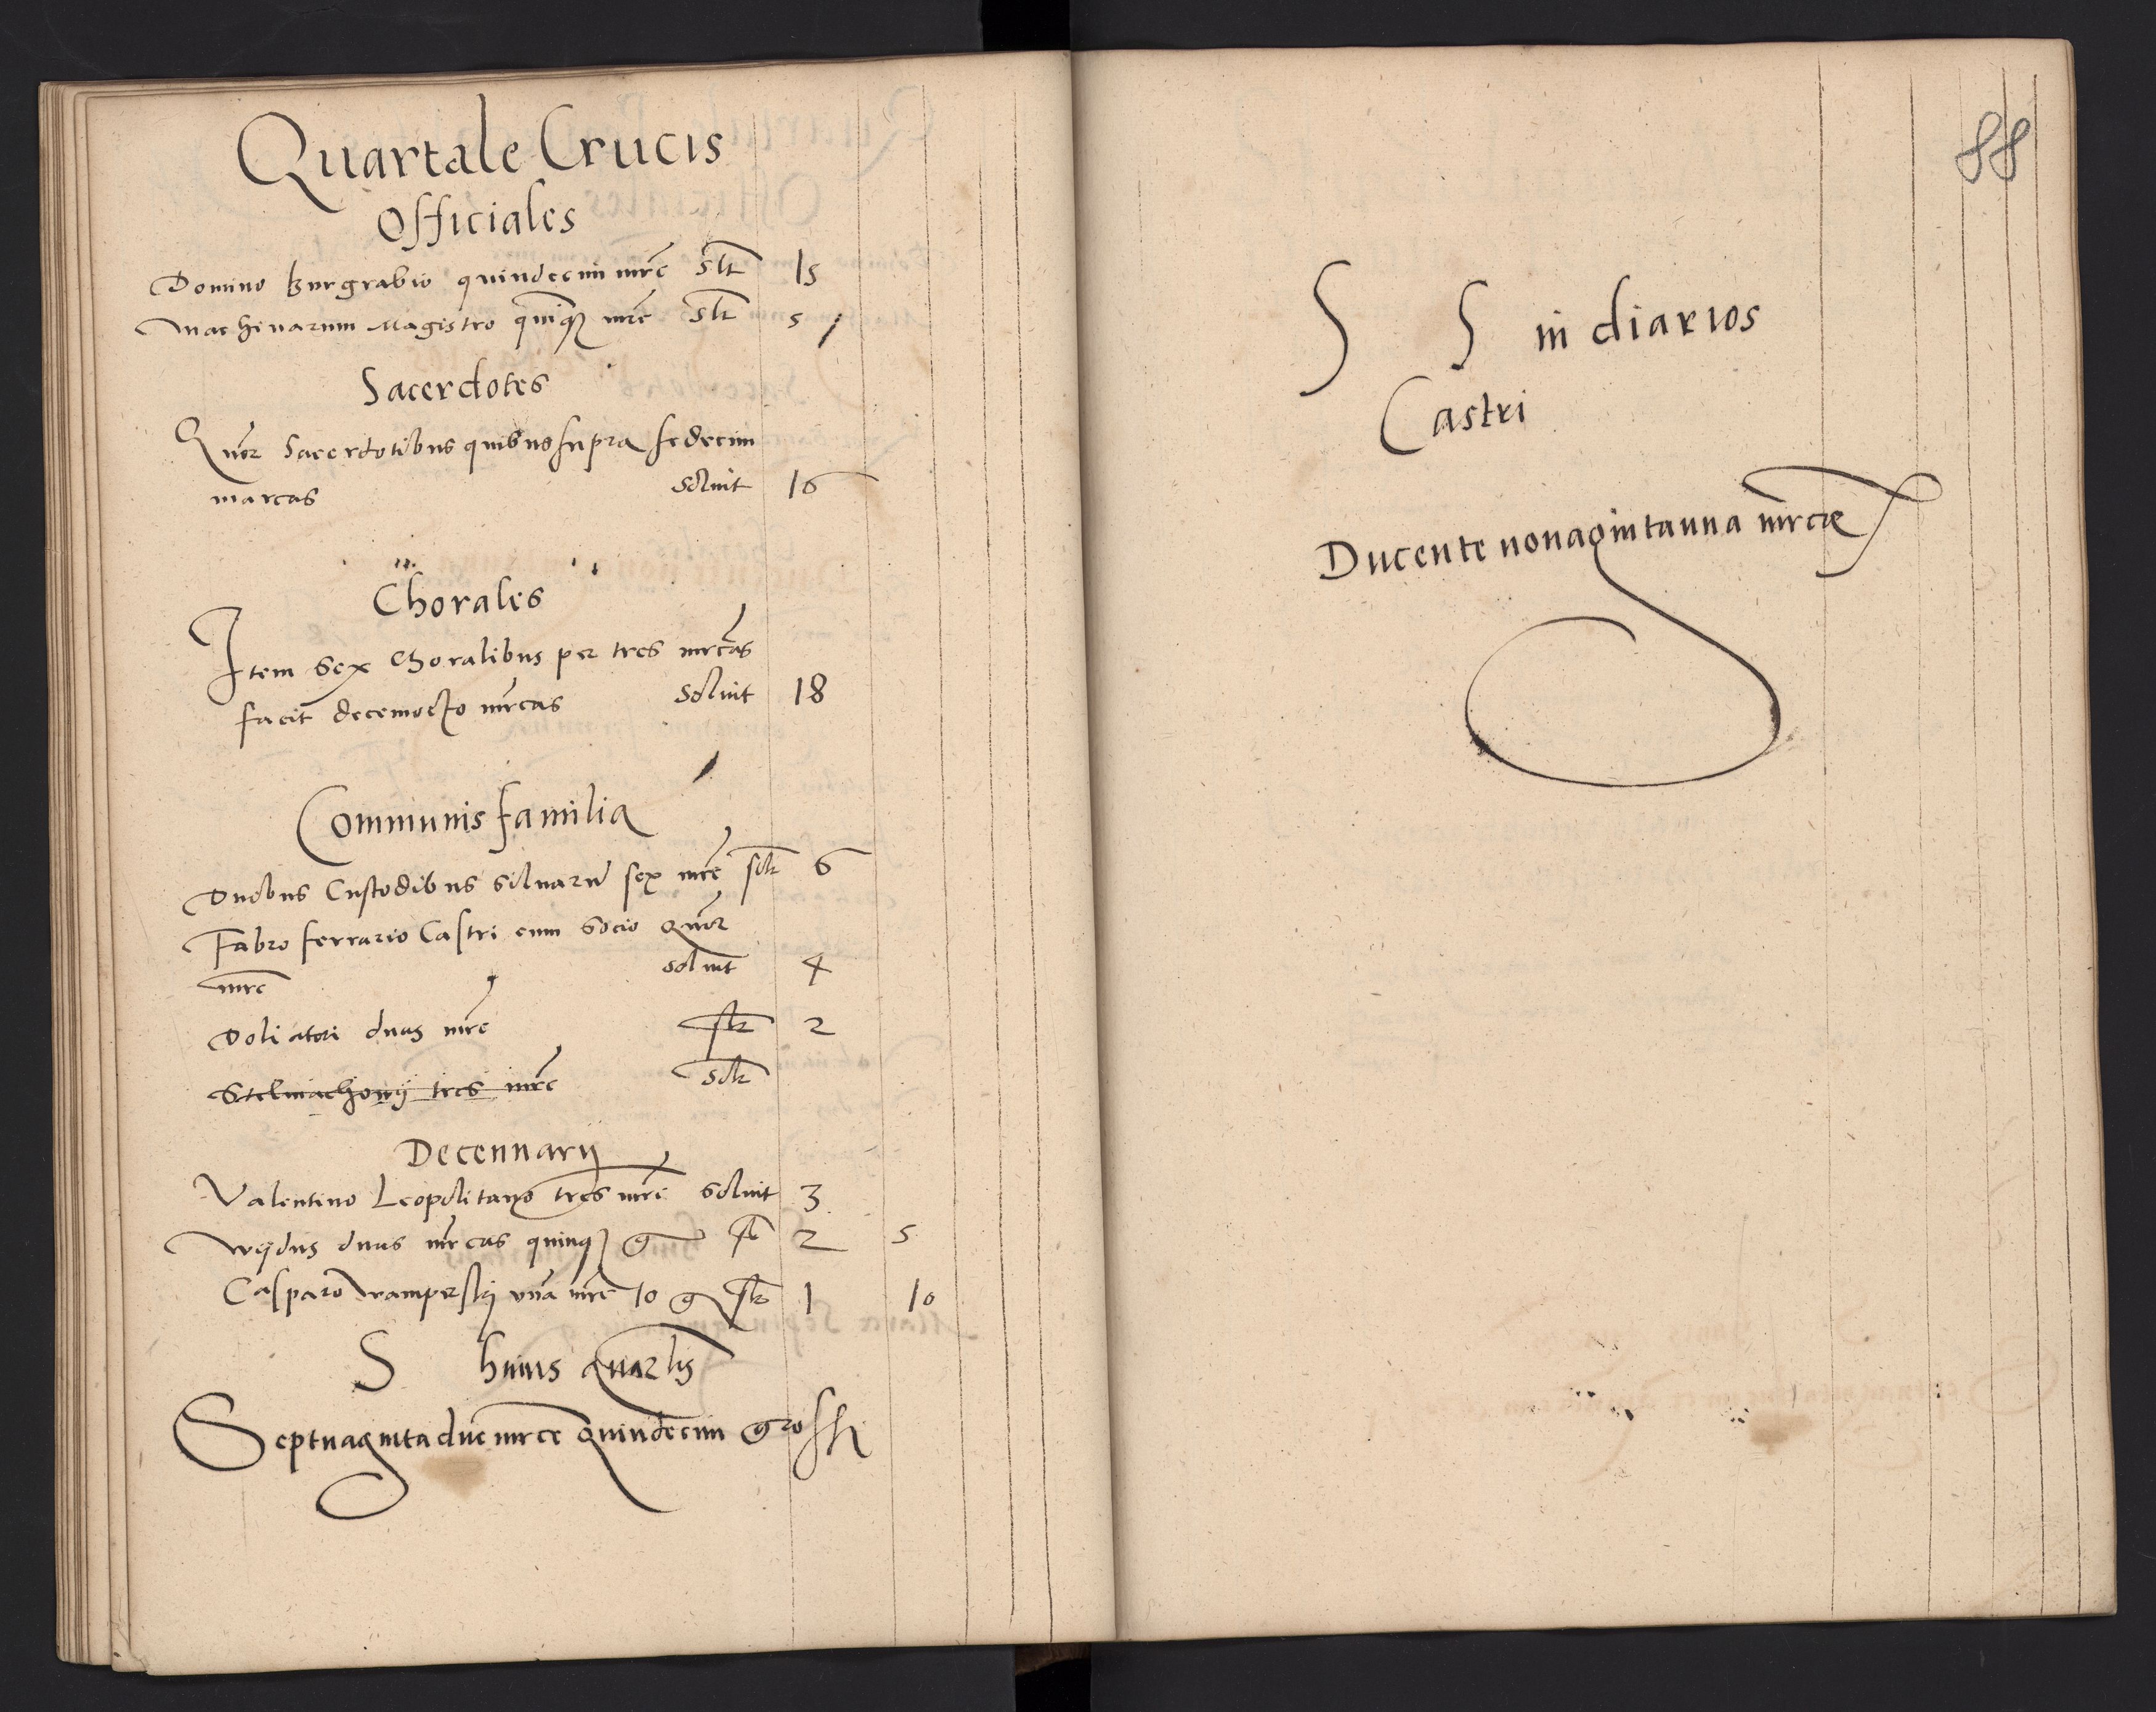 Quartale Crucis
Officiales
Domino Burgrabio quindecim mrc slt 15
Machinarum Magistro quinq mrc slt 5
Sacerdotes
Quor Sacerdotibus quibus supra sedecim
marcas soluit 16
Chorales
Item Sex Choralibus per tres mrcas
facit decemocto mrcas soluit 18
Communis familia
Duobus Custodibus siluaru sex mrc slt 6
Fabro ferrario Castri cum Socio Quor
mrc soluit 4
Doliatori duas mrc slt 2
Stelmachowy tres mrc slt
Decennarij
Valentino Leopolitano tres mrc soluit 3
duas mrcas quinq g slt 2 5
Casparo vna mrc 10 g slt 1 10
S huius quartlis
Septuaginta due mrce Quindecim grossi
88
S S in diarios
Castri
Ducente nonaginta una mrce